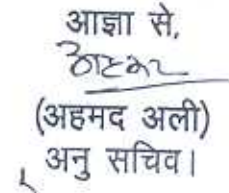 आज्ञा से,
(अहमद अली)
अनु सचिव।